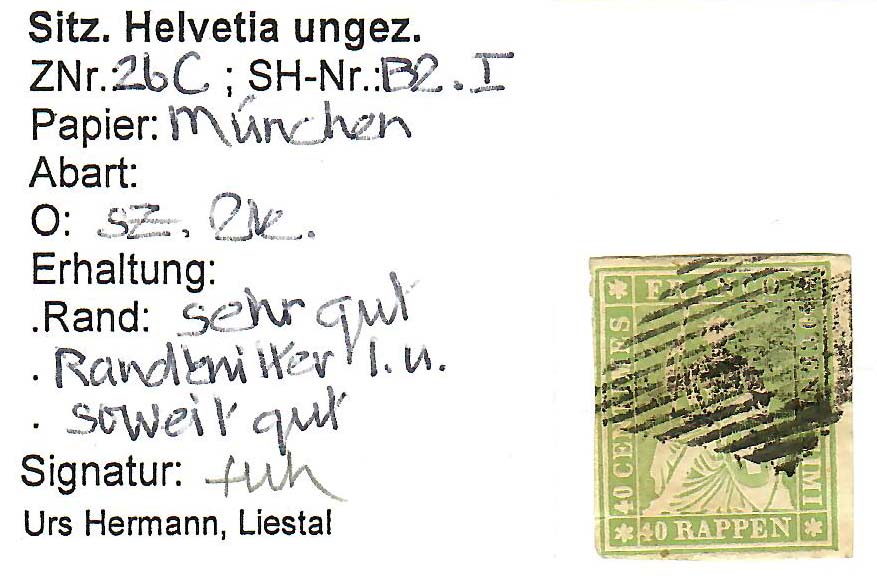 Sitz. Helvetia ungez.
ZNr.:26C ; SH-Nr.:B2.I
Papier: München
Abart:
O: sz.
Erhaltung:
.Rand: sehr gut
. Randknitter l.u.
. soweit gut
Signatur:
Urs Hermann, Liestal
FRANCO
40 CENTIMES
40 RAPPEN